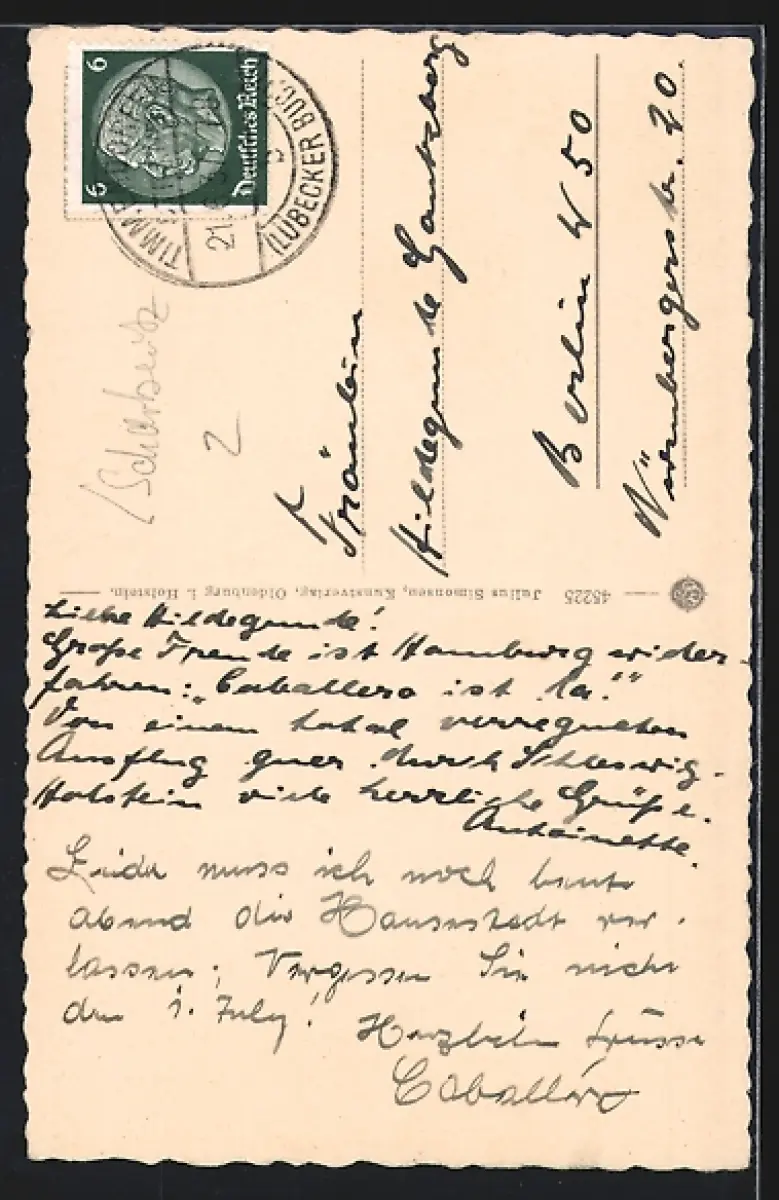 6 6
Deutsches Reich
TIMMENDORFER
21.
(LÜBECKER BUCHT)
(Scharbeutz
2
Fräulein
Hildegunde
Berlin W 50
Nürnbergerstr. 20.
45225 Julius Simonsen, Kunstverlag, Oldenburg i. Holstein.
Liebe Hildegunde!
Große Freude ist Hamburg wider-
fahren: „Caballero ist da!“
Von einem total verregneten
Ausflug quer durch Schleswig-
Holstein viele herzliche Grüße.
Antoinette.
Leider muss ich noch heute
abend die Hansestadt ver-
lassen; Vergessen Sie nicht
den 1. July!
Herzliche Grüsse
Caballero